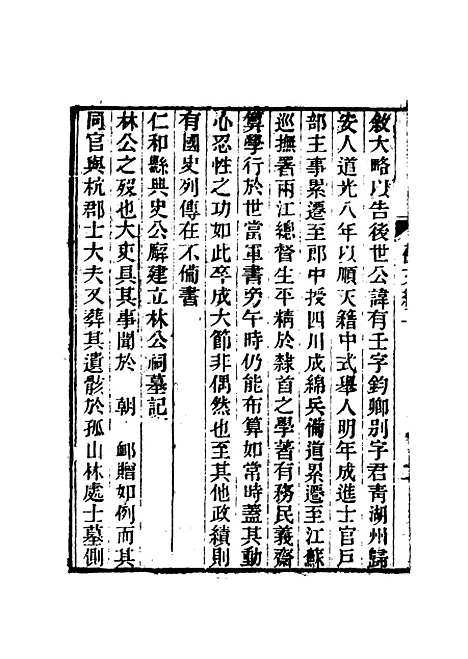 敘大略以告後世公諱有壬字鈞卿別字君青湖州歸
安人道光八年以順天籍中式舉人明年成進士官戶
部主事累遷至郎中授四川成綿兵備道累遷至江蘇
巡撫署兩江總督生平精於隸首之學著有務民義齋
算學行於世當軍書旁午時仍能布算如常時蓋其動
心忍性之功如此卒成大節非偶然也至其他政績則
有國史列傳在不備書
仁和縣典史公廨建立林公祠墓記
林公之歿也大吏具其事聞於 朝 卹贈如例而其
同官與杭郡士大夫又葬其遺骸於孤山林處士墓側